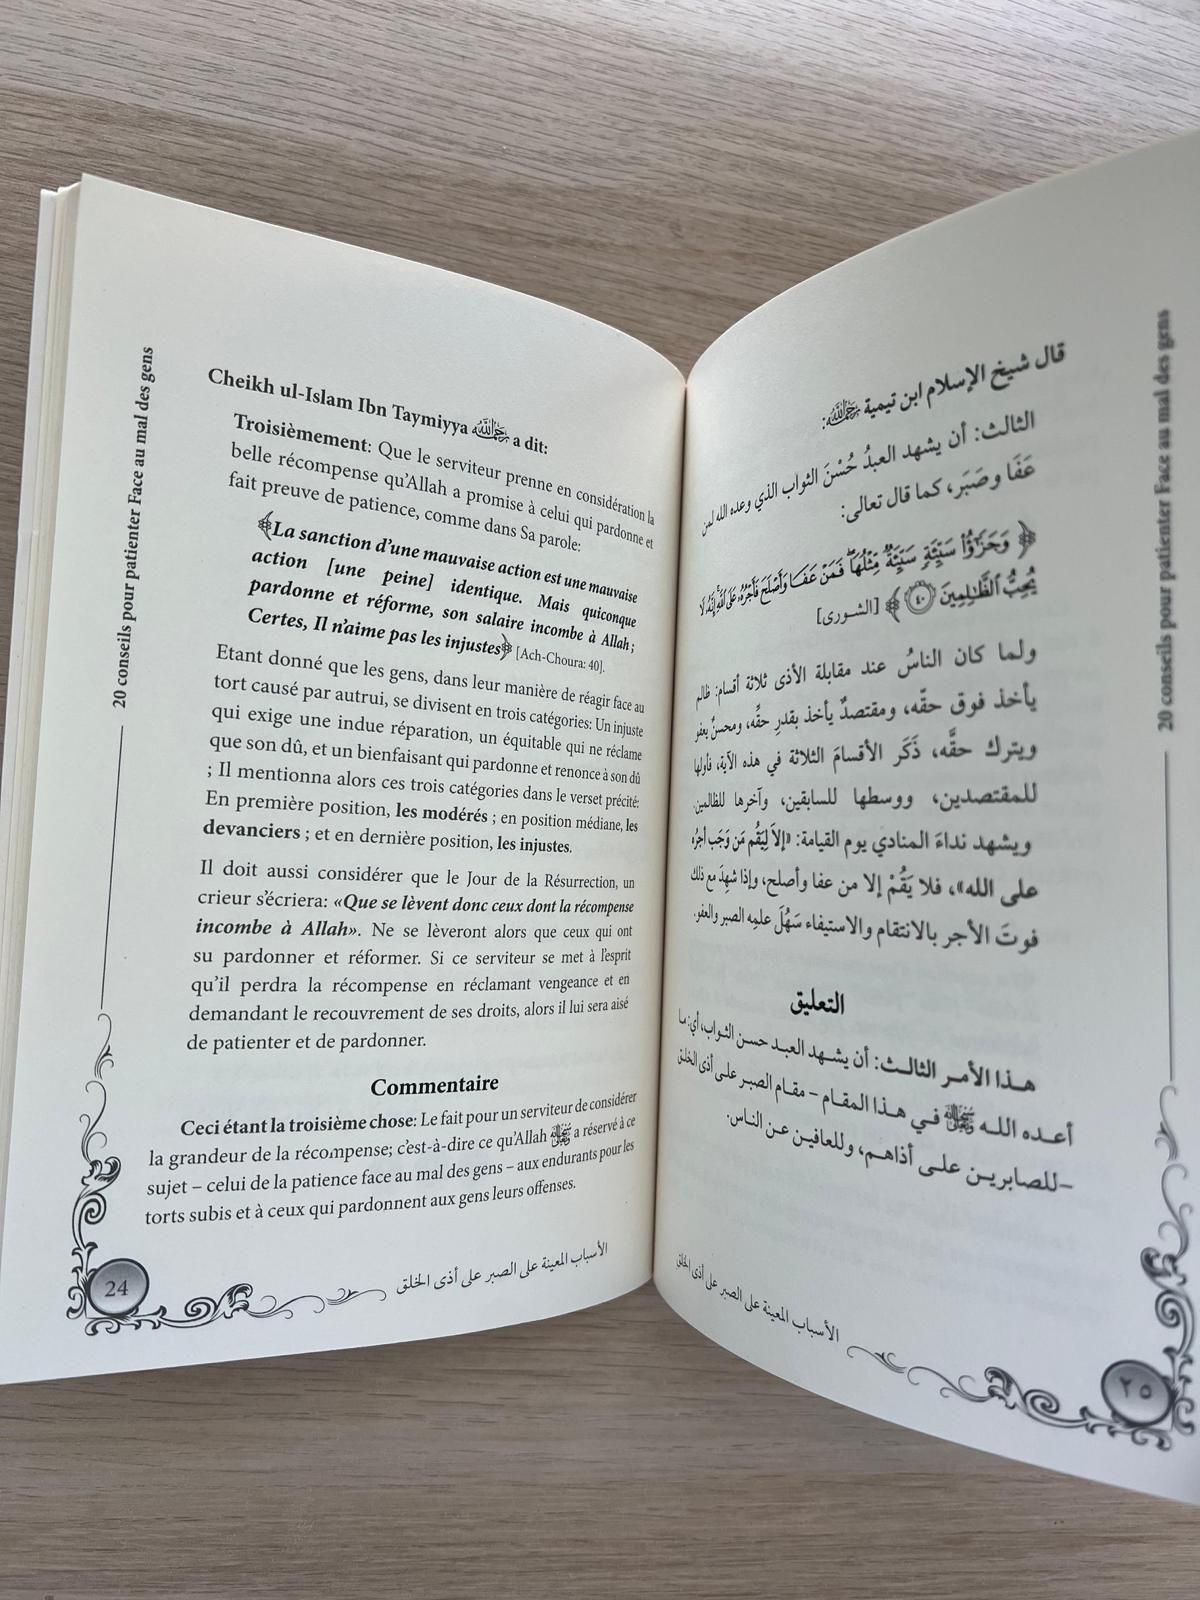 20 conseils pour patienter Face au mal des gens
Cheikh ul-Islam Ibn Taymiyya رحمه الله a dit:
Troisièmement: Que le serviteur prenne en considération la
belle récompense qu'Allah a promise à celui qui pardonne et
fait preuve de patience, comme dans Sa parole:
﴿La sanction d'une mauvaise action est une mauvaise
action [une peine] identique. Mais quiconque
pardonne et réforme, son salaire incombe à Allah ;
Certes, Il n'aime pas les injustes﴾ [Ach-Choura: 40].
Etant donné que les gens, dans leur manière de réagir face au
tort causé par autrui, se divisent en trois catégories: Un injuste
qui exige une indue réparation, un équitable qui ne réclame
que son dû, et un bienfaisant qui pardonne et renonce à son dû
; Il mentionna alors ces trois catégories dans le verset précité:
En première position, les modérés ; en position médiane, les
devanciers ; et en dernière position, les injustes.
Il doit aussi considérer que le Jour de la Résurrection, un
crieur s'écriera: «Que se lèvent donc ceux dont la récompense
incombe à Allah». Ne se lèveront alors que ceux qui ont
su pardonner et réformer. Si ce serviteur se met à l'esprit
qu'il perdra la récompense en réclamant vengeance et en
demandant le recouvrement de ses droits, alors il lui sera aisé
de patienter et de pardonner.
Commentaire
Ceci étant la troisième chose: Le fait pour un serviteur de considérer
la grandeur de la récompense; c'est-à-dire ce qu'Allah ﷻ a réservé à ce
sujet – celui de la patience face au mal des gens – aux endurants pour les
torts subis et à ceux qui pardonnent aux gens leurs offenses.
الأسباب المعينة على الصبر على أذى الخلق
24
قال شيخ الإسلام ابن تيمية رحمه الله:
الثالث: أن يشهد العبدُ حُسْنَ الثواب الذي وعده الله لمن
عَفَا وصَبَر، كما قال تعالى:
﴿ وَجَزَٰٓؤُاْ سَيِّئَةٖ سَيِّئَةٞ مِّثۡلُهَاۖ فَمَنۡ عَفَا وَأَصۡلَحَ فَأَجۡرُهُۥ عَلَى ٱللَّهِۚ إِنَّهُۥ لَا
يُحِبُّ ٱلظَّٰلِمِينَ ٤٠ ﴾ [الشورى]
ولما كان الناسُ عند مقابلة الأذى ثلاثة أقسام: ظالم
يأخذ فوق حقّه، ومقتصدٌ يأخذ بقدرِ حقِّه، ومحسنٌ يعفو
ويترك حقَّه، ذَكَر الأقسامَ الثلاثة في هذه الآية، فأولها
للمقتصدين، ووسطها للسابقين، وآخرها للظالمين.
ويشهد نداءَ المنادي يوم القيامة: «إلَا لِيَقُم مَن وَجَب أجرُه
على الله»، فلا يَقُمْ إلا من عفا وأصلح، وإذا شهِدَ مع ذلك
فوتَ الأجر بالانتقام والاستيفاء سَهُلَ علمِه الصبر والعفو.
التعليق
هذا الأمر الثالث: أن يشهد العبد حسن الثواب، أي: ما
أعده الله ﷻ في هذا المقام – مقام الصبر على أذى الخلق
–للصابرين على أذاهم، وللعافين عن الناس.
الأسباب المعينة على الصبر على أذى الخلق
٢٥
20 conseils pour patienter Face au mal des gens